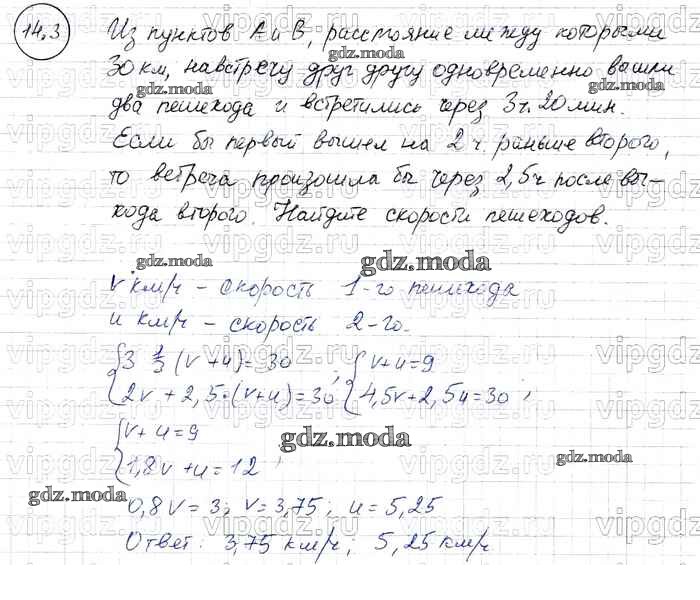 14.3
Из пунктов А и В, расстояние между которыми
30 км, навстречу друг другу одновременно вышли
два пешехода и встретились через 3ч. 20 мин.
Если бы первый вышел на 2 ч. раньше второго,
то встреча произошла бы через 2,5ч после вы-
хода второго. Найдите скорости пешеходов.
v км/ч – скорость 1-го пешехода
u км/ч – скорость 2-го.
{3 1/3 (v+u)=30 ; {v+u=9
{2v+2,5·(v+u)=30 {4,5v+2,5u=30 ;
{v+u=9
{1,8v+u=12 ;
0,8v=3; v=3,75; u=5,25
Ответ: 3,75 км/ч; 5,25 км/ч.
gdz.moda
vipgdz.ru